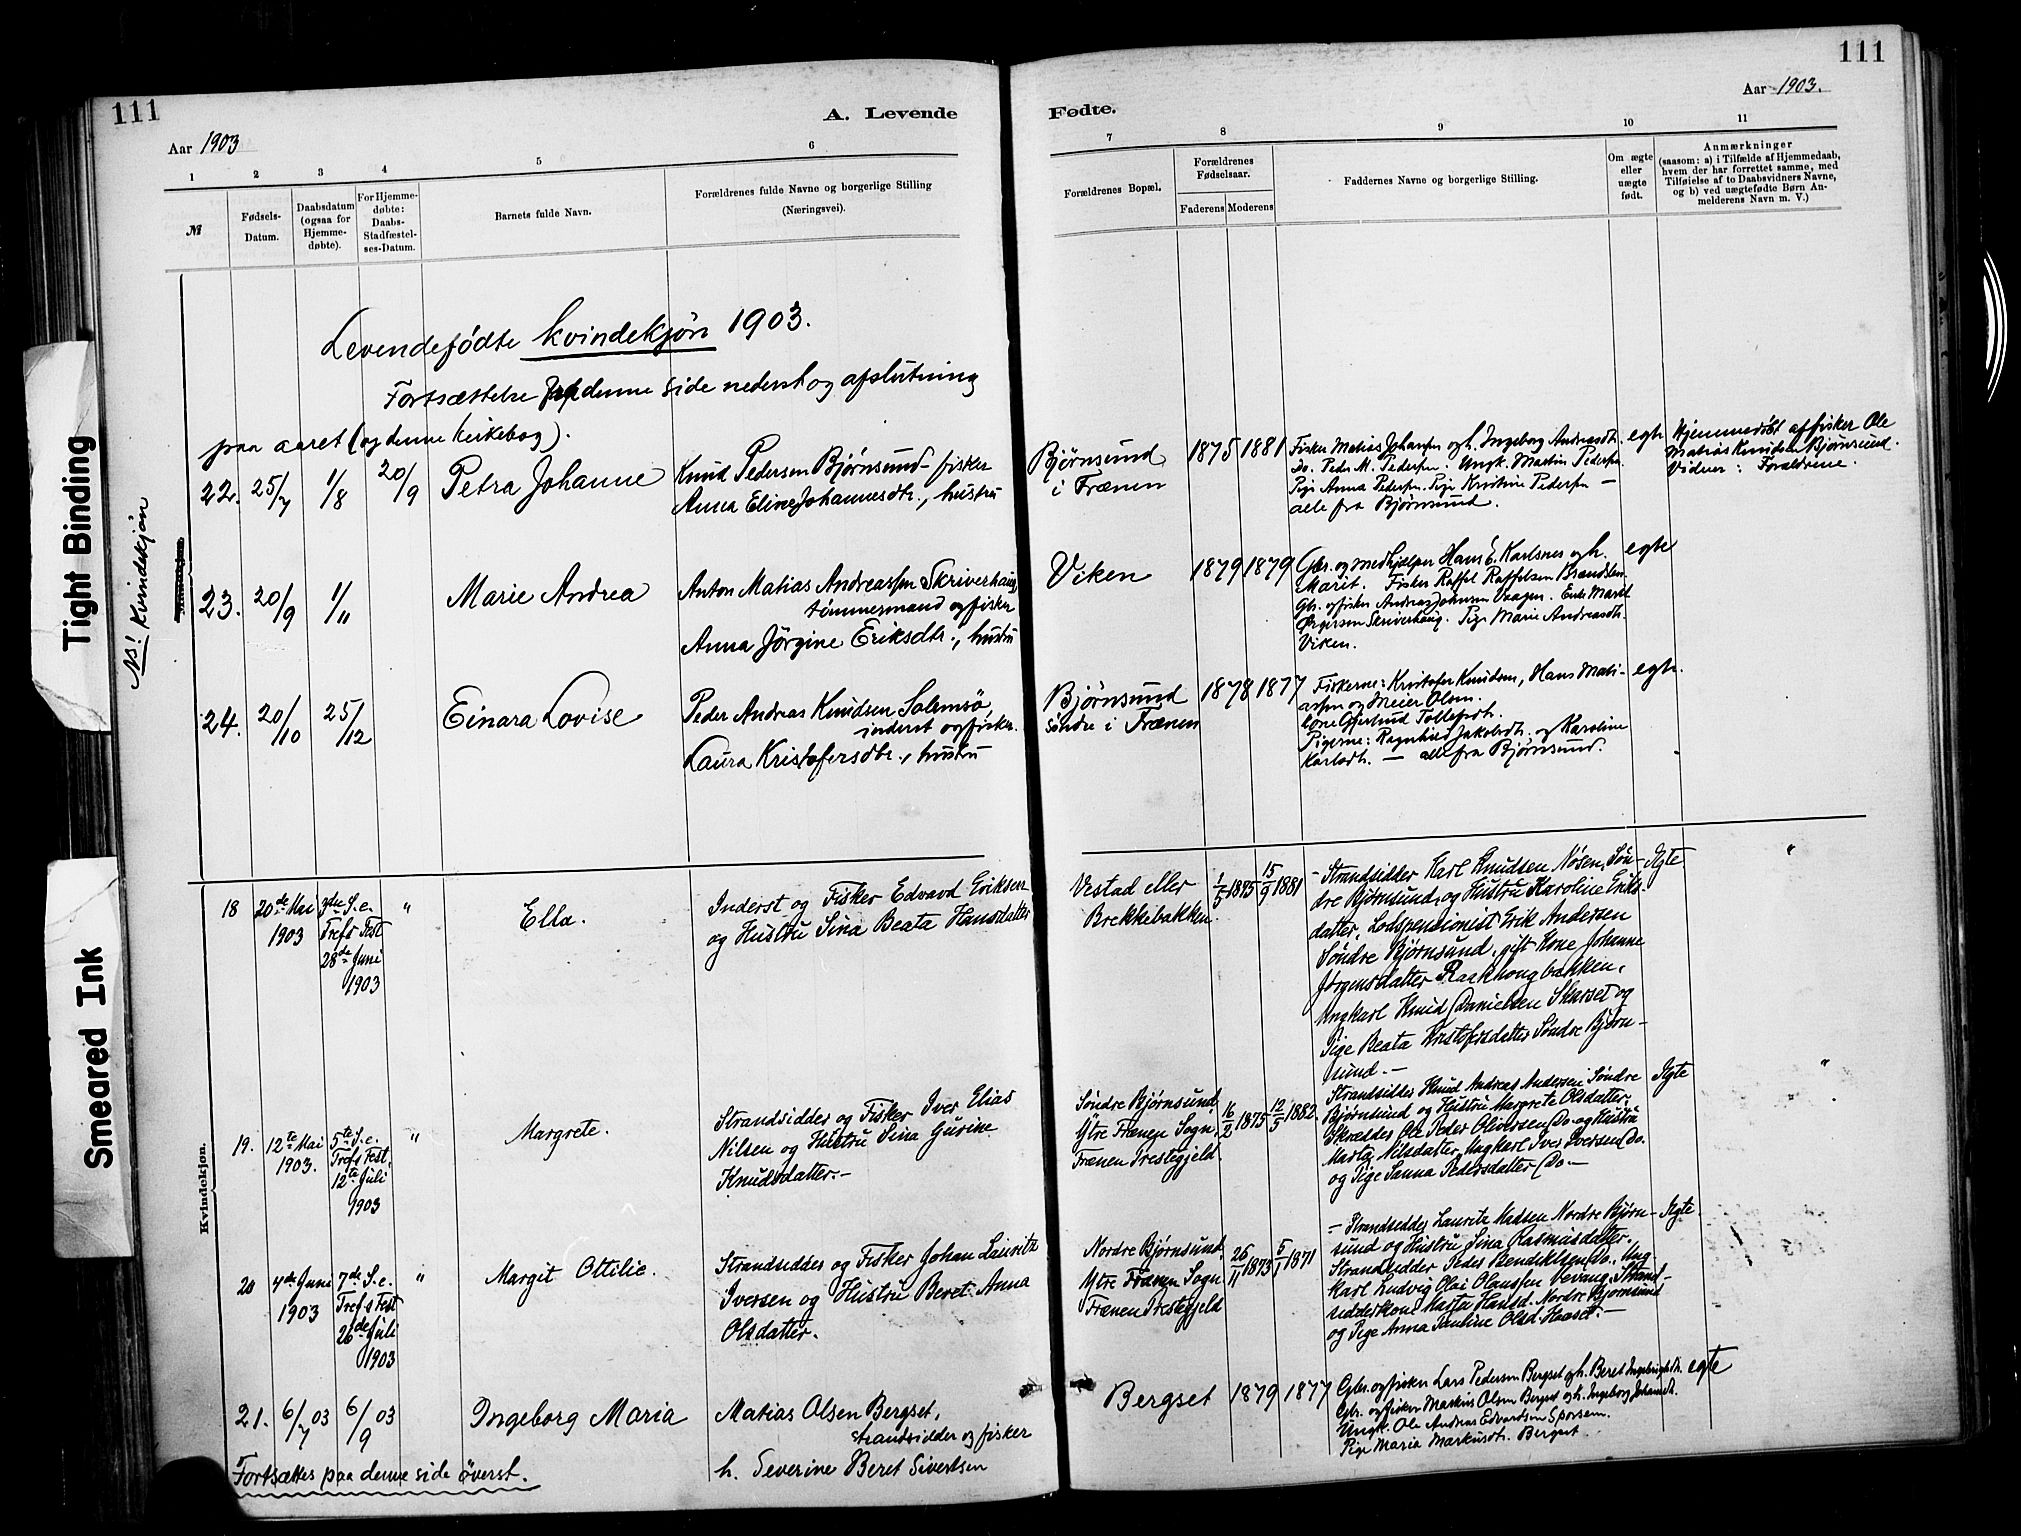 111
111
Aar 1903
A. Levende
Fødte.
Aar 1903.
1 2 3 4 5 6 7 8 9 10 11
№
Fødsels-
Datum.
Daabsdatum
(ogsaa for
Hjemme-
døbte).
For Hjemme-
døbte:
Daabs-
Stadfæstel-
ses-Datum.
Barnets fulde Navn.
Forældrenes fulde Navne og borgerlige Stilling
(Næringsvei).
Forældrenes Bopæl.
Forældrenes
Fødselsaar.
Faderens Moderens
Faddernes Navne og borgerlige Stilling.
Om ægte
eller
uægte
født.
Anmærkninger
(saasom: a) i Tilfælde af Hjemmedaab,
hvem der har forrettet samme, med
Tilføielse af to Daabsvidners Navne,
og b) ved uægtefødte Børn An-
melderens Navn m. V.)
Tight Binding
Smeared Ink
NB! Kvindekjøn
Kvindekjøn.
Levendefødte kvindekjøn 1903.
Fortsættelse fra denne side nederst og afslutning
paa aaret (og denne kirkebog).
22. 25/7 1/8 20/9 Petra Johanne
Knud Pedersen Bjørnsund - fisker
Anna Eline Johannesdtr., hustru
Bjørnsund
i Frænen
1875 1881
Fisker Matias Johansen og h. Ingeborg Andreasdtr.
Do. Peder M. Pedersen. Ungk. Martin Pedersen.
Pige Anna Pedersen. Pige Kristine Pedersen —
alle fra Bjørnsund.
egte
Hjemmedøbt af fisker Ole
Matias Knudsen Bjørnsund.
Vidner: Forældrene.
23. 20/9 1/11 Marie Andrea
Anton Matias Andreassen Skriverhaug,
tømmermand og fisker
Anna Jørgine Eriksdtr., hustru
Viken
1879 1879
Gbr. og medhjælper Hans E. Karlsnes og h.
Marit. Fisker Raffel Raffelsen
Gbr. og fisker Andreas Johnsen Vaagen. Enke Marit
Skriverhaug. Pige Marie Andreasdtr.
Viken.
egte
24. 20/10 25/12 Einara Lovise
Peder Andreas Knudsen Solemsö,
inderst og fisker.
Laura Kristofersdtr., hustru
Bjørnsund
søndre i Frænen
1878 1877
Fiskerne: Kristofer Knudsen, Hans Mati-
assen og Meier Olsen.
Kone Gjertrud Tollefsdtr.
Pigerne: Ragnhild Jakobsdtr. og Karoline
Karlsdtr. — alle fra Bjørnsund.
egte.
18 20de Mai
1903
3die S. e.
Trefs Fest
28de Juni
1903
" Ella.
Inderst og Fisker Edvard Eriksen
og Hustru Sina Beata Hansdatter
Vestad eller
Brekkebakken.
1/5 1875 15/9 1881
- Strandsidder Karl Knudsen Nøsen, Søn-
dre Bjørnsund, og Hustru Karoline Eriks-
datter, Lodspensionist Erik Andersen
Søndre Bjørnsund, gift Kone Johanne
Jørgensdatter Raakhougbakken,
Ungkarl Knud Danielsen Skarset og
Pige Beata Kristofersdatter Søndre Bjørn-
sund. -
Ægte "
19. 12te Mai
1903.
5te S. e.
Trefs Fest,
12te Juli
1903
" Margrete.
Strandsidder og Fisker Iver Elias
Nilsen og Hustru Sina Gurine
Knudsdatter. -
Søndre Bjørnsund,
Ytre Frænen Sogn,
Frænen Prestegjeld.
16/2 1875 12/5 1882
Strandsidder Knud Andreas Andersen Søndre
Bjørnsund og Hustru Margrete Olsdatter,
Skrædder Ole Peder Oliversen Do. og Hustru
Marta Nilsdatter, Ungkarl Iver Iversen Do.
og Pige Sanna Pedersdatter Do -
Ægte "
20 4de Juni
1903
7de S. e.
Trefs Fest
26de Juli
1903
" Margit Ottilie.
Strandsidder og Fisker Johan Lauritz
Iversen og Hustru Beret Anna
Olsdatter.
Nordre Bjørnsund,
Ytre Frænen Sogn
Frænen Prestegjeld
26/11 1873 5/1 1871
- Strandsidder Lauritz Madsen Nordre Bjørn-
sund og Hustru Sina Rasmusdatter,
Strandsidder Peder Bendiktsen Do., Ung-
karl Ludvig Olai Olaussen Vevang, Strand-
sidderkone Marta Hansd. Nordre Bjørnsund
og Pige Anna Pauline Olsd. Haaset. -
Ægte.
21. 6/7 03 6/9 03 Ingeborg Maria
Matias Olsen Bergset,
strandsidder og fisker
h. Severine Beret Sivertsen
Bergset 1879 1877
Gbr. og fisker Lars Pedersen Bergset og h. Beret Ingebrigtsdtr.
Gbr. og fisker Markus Olsen Bergset og h. Ingeborg Johansdtr.
Ungk. Ole Andreas Edvardsen Sporsem.
Pige Maria Markusdtr. Bergset.
egte
Fortsættes paa denne side øverst.